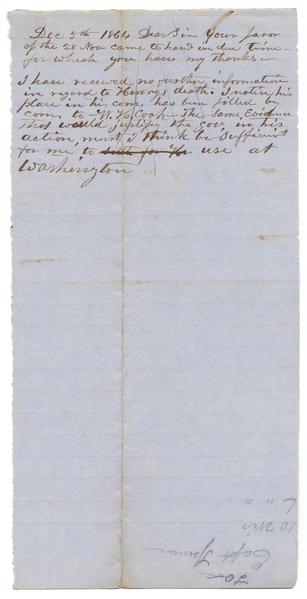 Dec 5th 1864 Dear Sir Your favor
of the 28 Nov came to hand in due time
for which you have my thanks—
I have received no further information
in regard to Henry's death. I notice his
place in his com, has been filled by
com, to Cook— The same Evidence
that would justify the gov, in his
action, must i think be sufficient
for me, to use at
Washington
10 Wis
" "
Capt